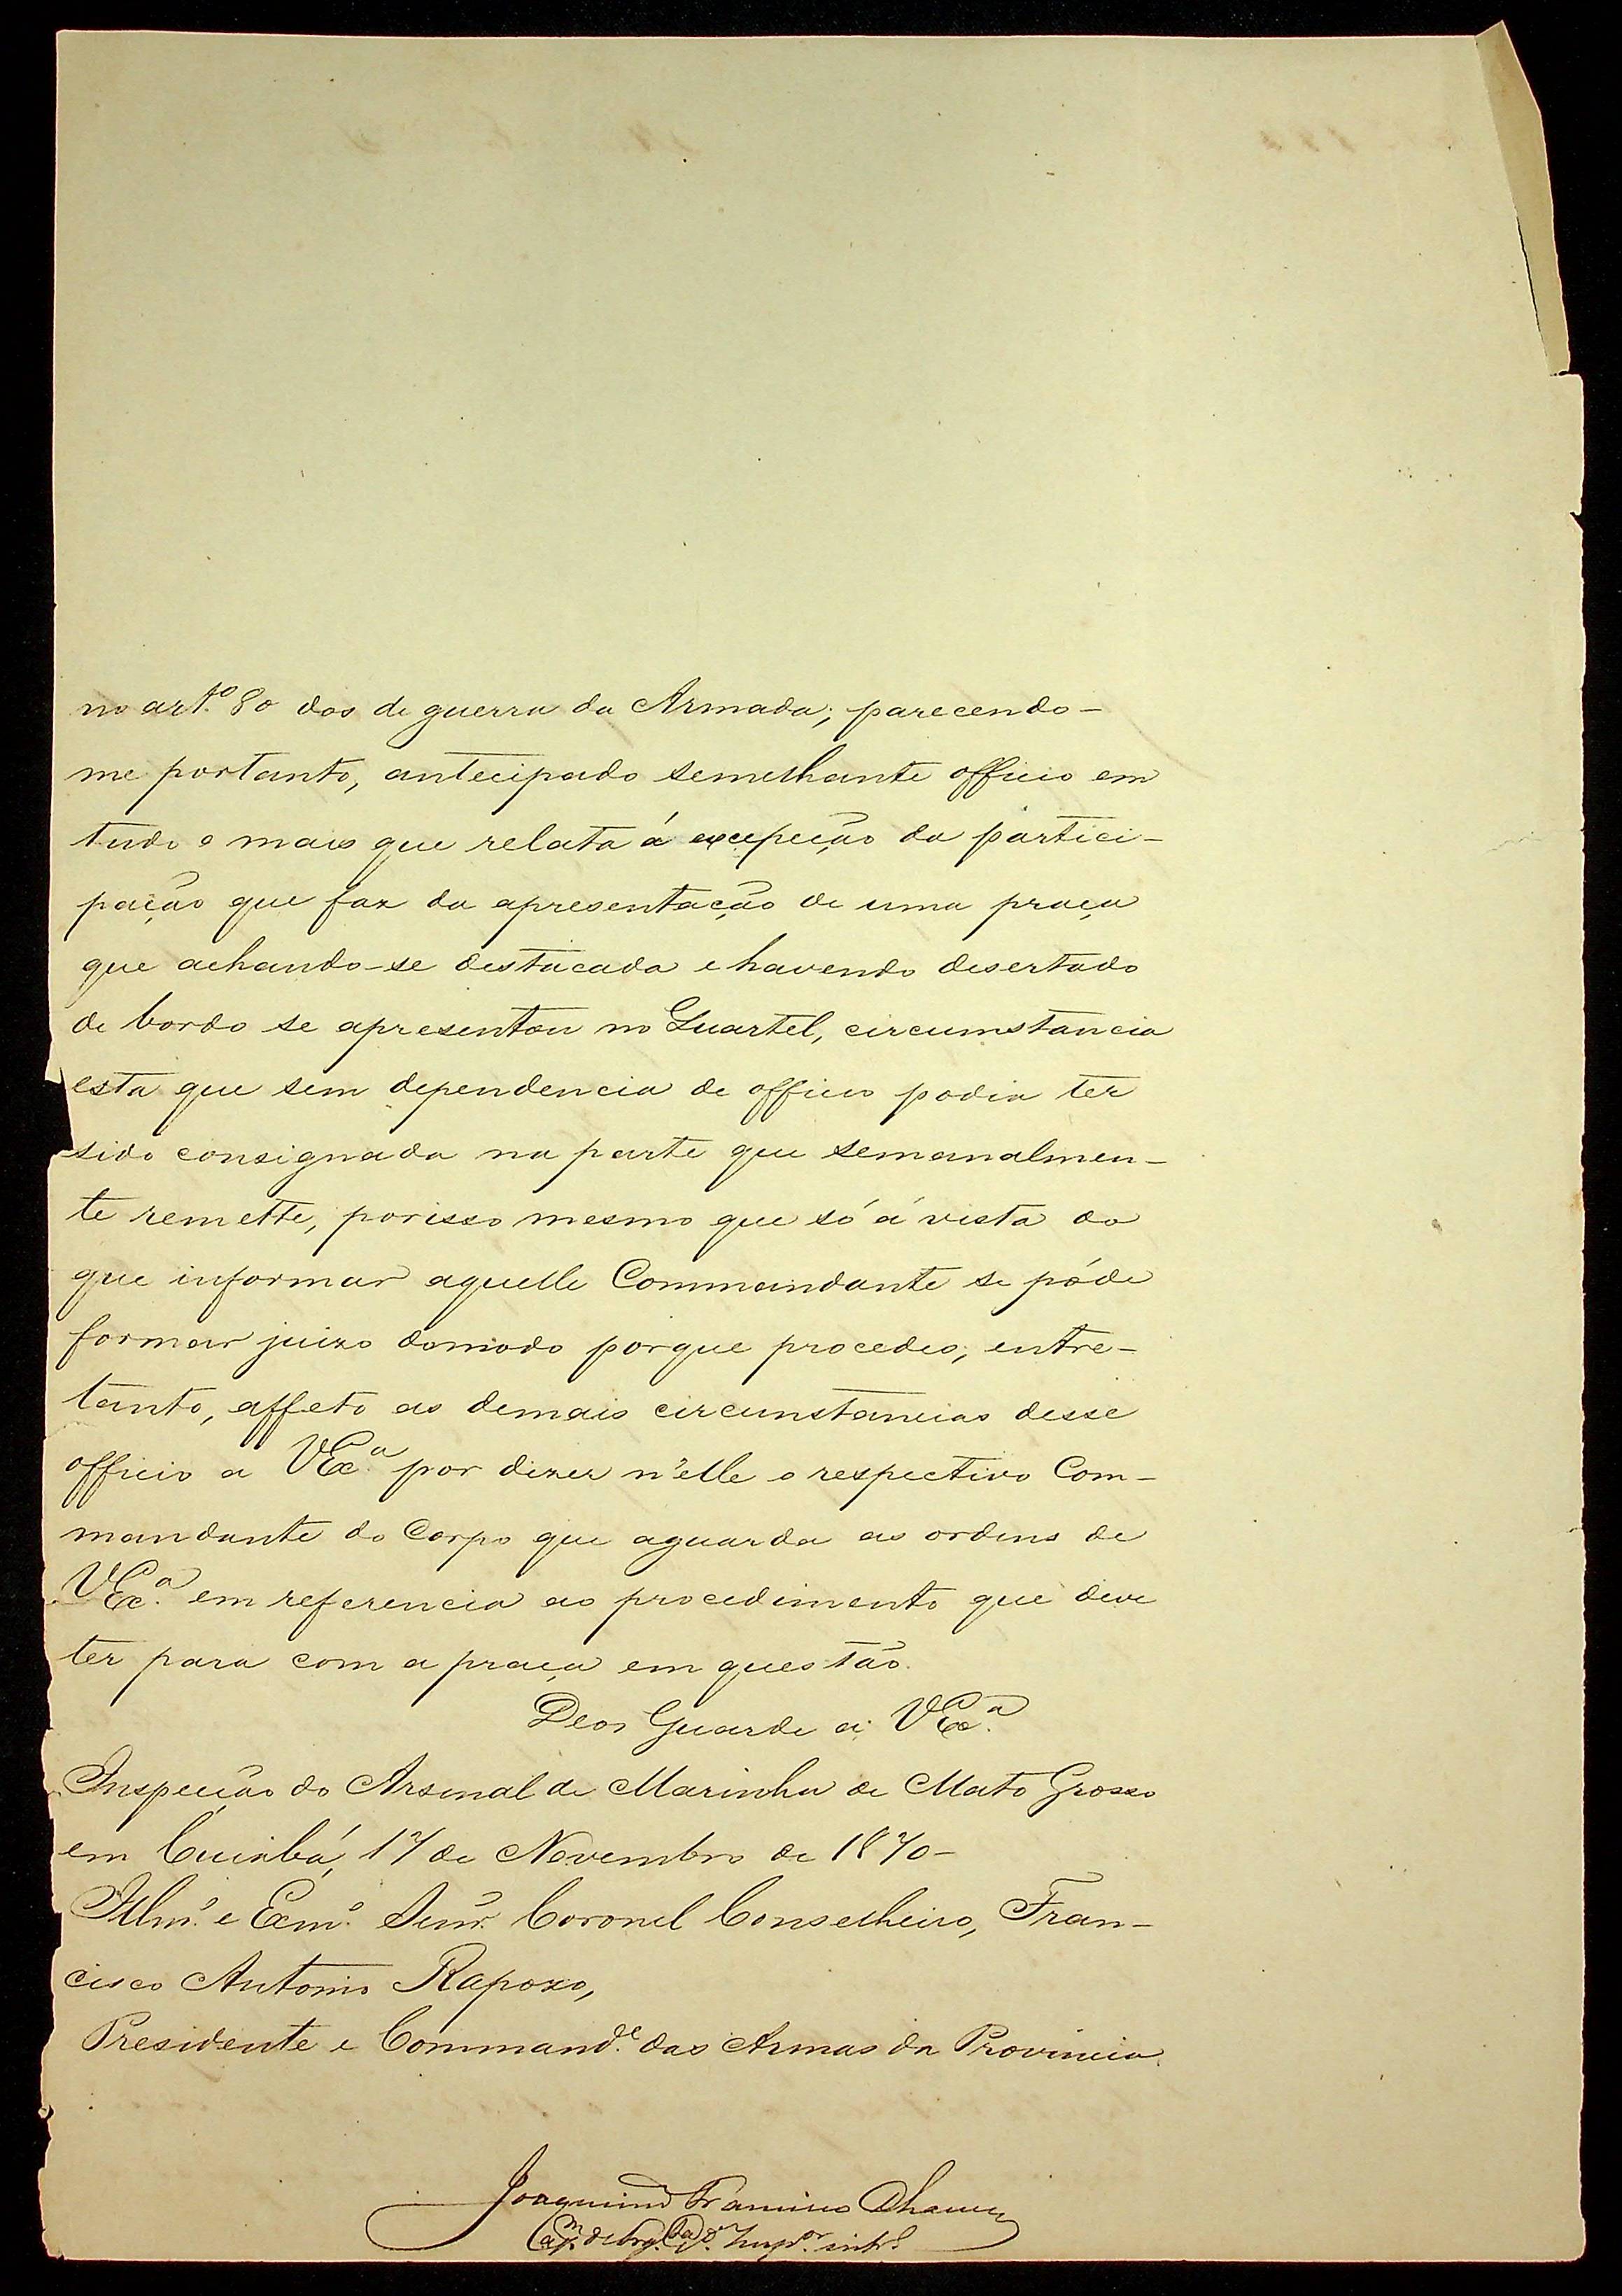 no art.º 80 dos de guerra da Armada; parecendo-
me portanto, antecipado semelhante officio em
tudo o mais que relata á excepção da partici-
pação que faz da apresentação de uma praça
que achando-se destacada e havendo desertado
de bordo se apresentou no Quartel, circumstancia
esta que sem dependencia de officio podia ter
sido consignada na parte que semanalmen-
te remette, porisso mesmo que só á vista do
que informar aquelle Commandante se póde
formar juizo domodo porque procedeo; entre-
tanto, affeto as demais circunstancias desse
officio a VExª por dizer n'elle o respectivo Com-
mandante do Corpo que aguarda as ordens de
VExª em referencia ao procedimento que deve
ter para com a praça em questão.
Deos Guarde a VExª
Inspecção do Arsenal de Marinha de Mato Grosso
em Cuiabá, 17 de Novembro de 1870-
Illmº e Exmº Senr. Coronel Conselheiro, Fran-
cisco Antonio Rapozo,
Presidente e Commandᵉ das Armas da Provincia.
Joaquim Francisco Chaves
Capᵐ Inspᵒʳ intº